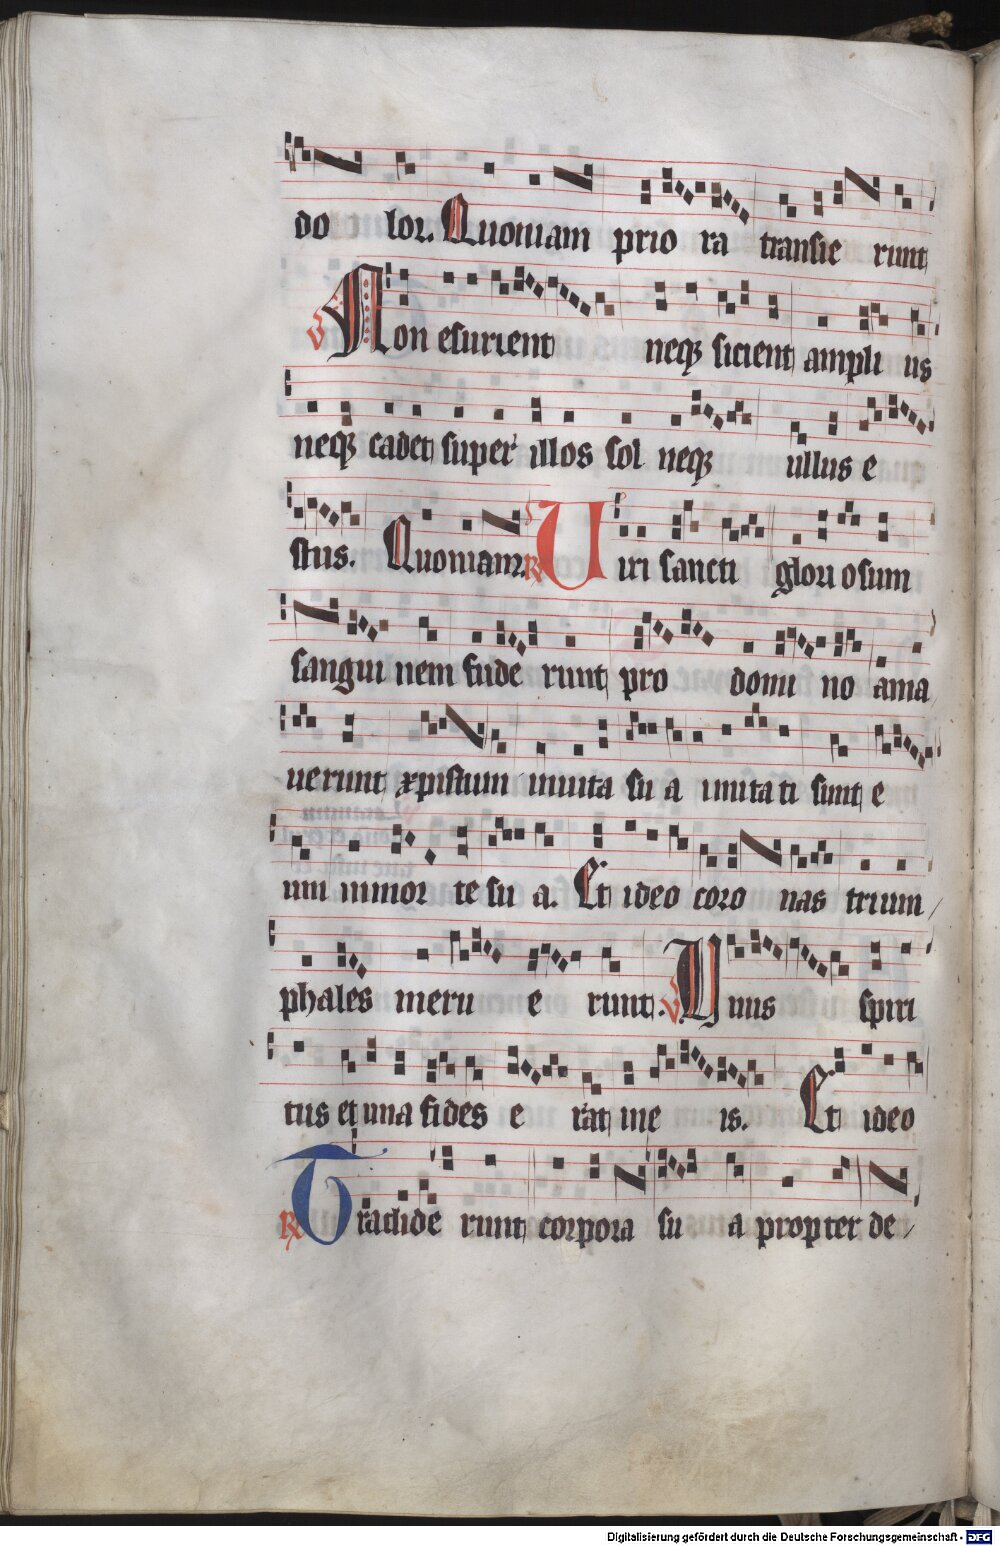 do lor. Quoniam prio ra transie runt
℣ Non esurient neqꝫ sicient ampli us
neqꝫ cadet super illos sol neqꝫ ullus e
stus. Quoniam. ℟ Uiri sancti glori osum
sangui nem fude runt pro domi no ama
uerunt xpistum in uita su a imita ti sunt e
um in mor te su a. Et ideo coro nas trium
phales meru e runt. ℣ Unus spiri
tus et una fides e rat in e is. Et ideo
℟ Tradide runt corpora su a propter de
Digitalisierung gefördert durch die Deutsche Forschungsgemeinschaft - DFG